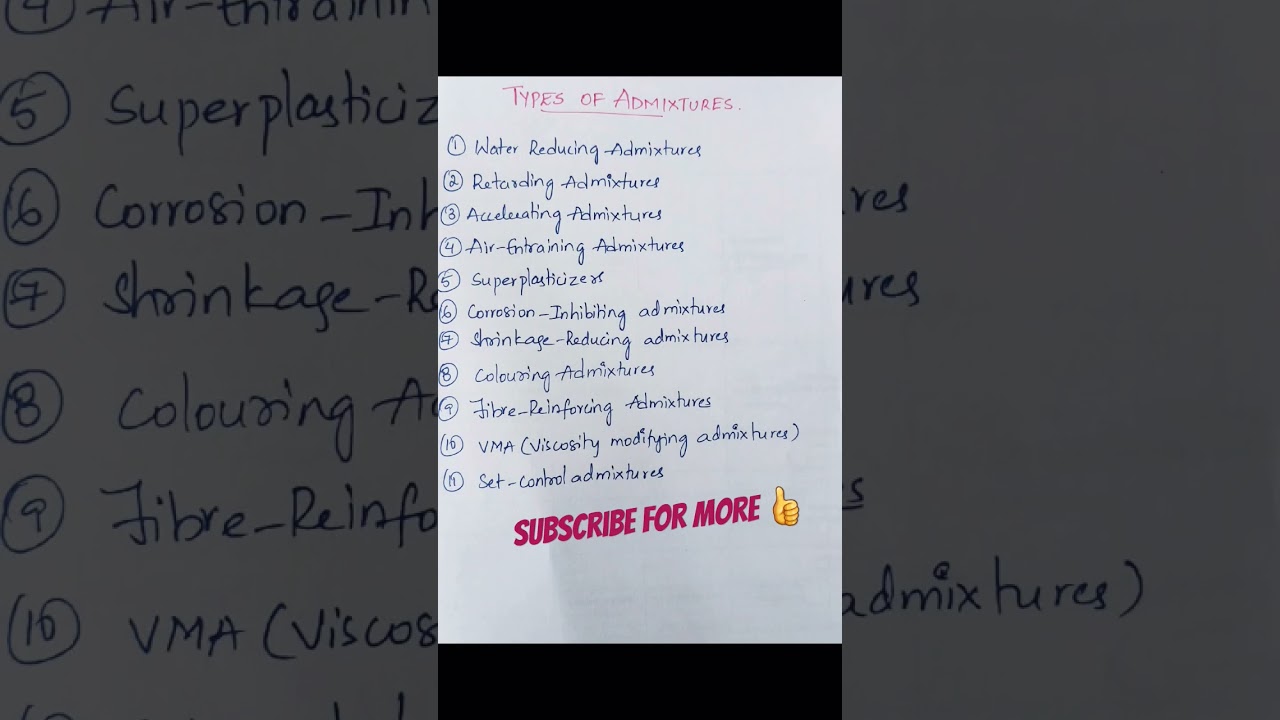 TYPES OF ADMIXTURES.
① Water Reducing Admixtures
② Retarding Admixtures
③ Accelerating Admixtures
④ Air-Entraining Admixtures
⑤ Superplasticizers
⑥ Corrosion-Inhibiting admixtures
⑦ Shrinkage-Reducing admixtures
⑧ Colouring Admixtures
⑨ Fibre-Reinforcing Admixtures
⑩ VMA (Viscosity modifying admixtures)
⑪ Set-Control admixtures
SUBSCRIBE FOR MORE 👍